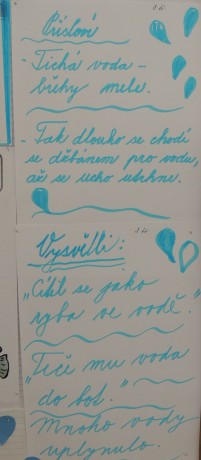 Přísloví
- Tichá voda -
břehy mele.
- Tak dlouho se chodí
se džbánem pro vodu,
až se ucho utrhne.
Vysvětli:
„Cítit se jako
ryba ve vodě."
„Teče mu voda
do bot."
Mnoho vody
uplynulo.